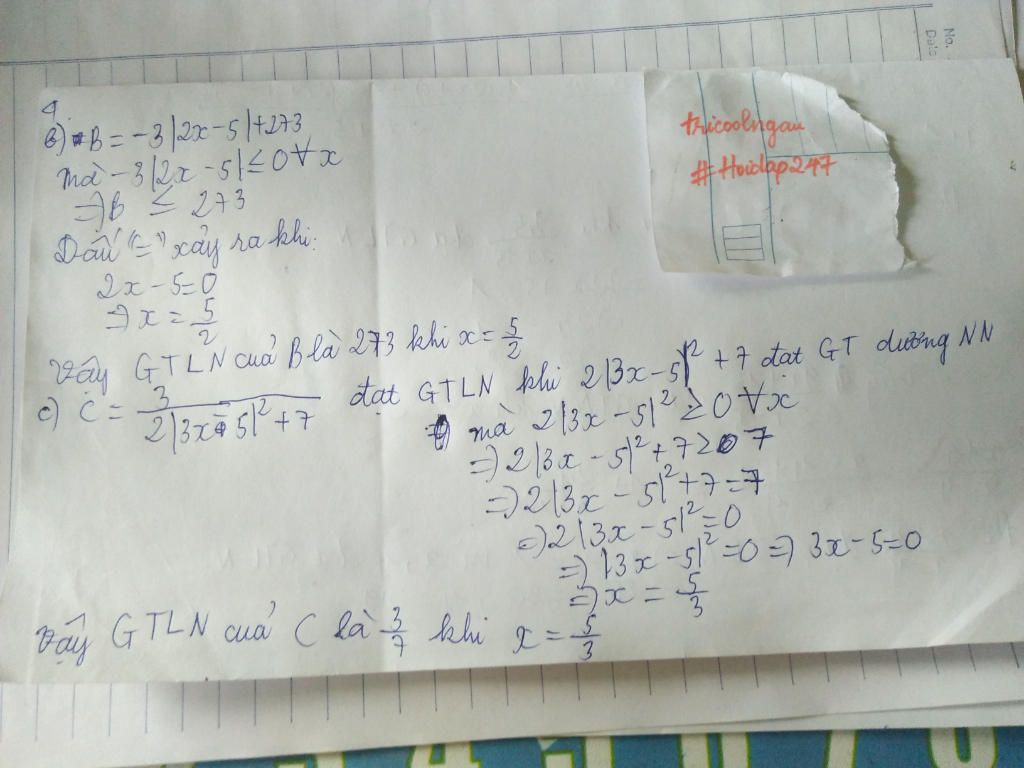 4.
b) B = -3|2x - 5| + 273
mà -3|2x - 5| ≤ 0 ∀ x
=> B ≤ 273
Dấu "=" xảy ra khi:
2x - 5 = 0
=> x = 5/2
Vậy GTLN cuả B là 273 khi x = 5/2
c) C = 3/(2|3x - 5|² + 7) đạt GTLN khi 2|3x - 5|² + 7 đạt GT dương NN
mà 2|3x - 5|² ≥ 0 ∀ x
=> 2|3x - 5|² + 7 ≥ 7
=> 2|3x - 5|² + 7 = 7
=> 2|3x - 5|² = 0
=> |3x - 5|² = 0 => 3x - 5 = 0
=> x = 5/3
Vậy GTLN cuả C là 3/7 khi x = 5/3
tricoolngau
#Hoidap247
No.